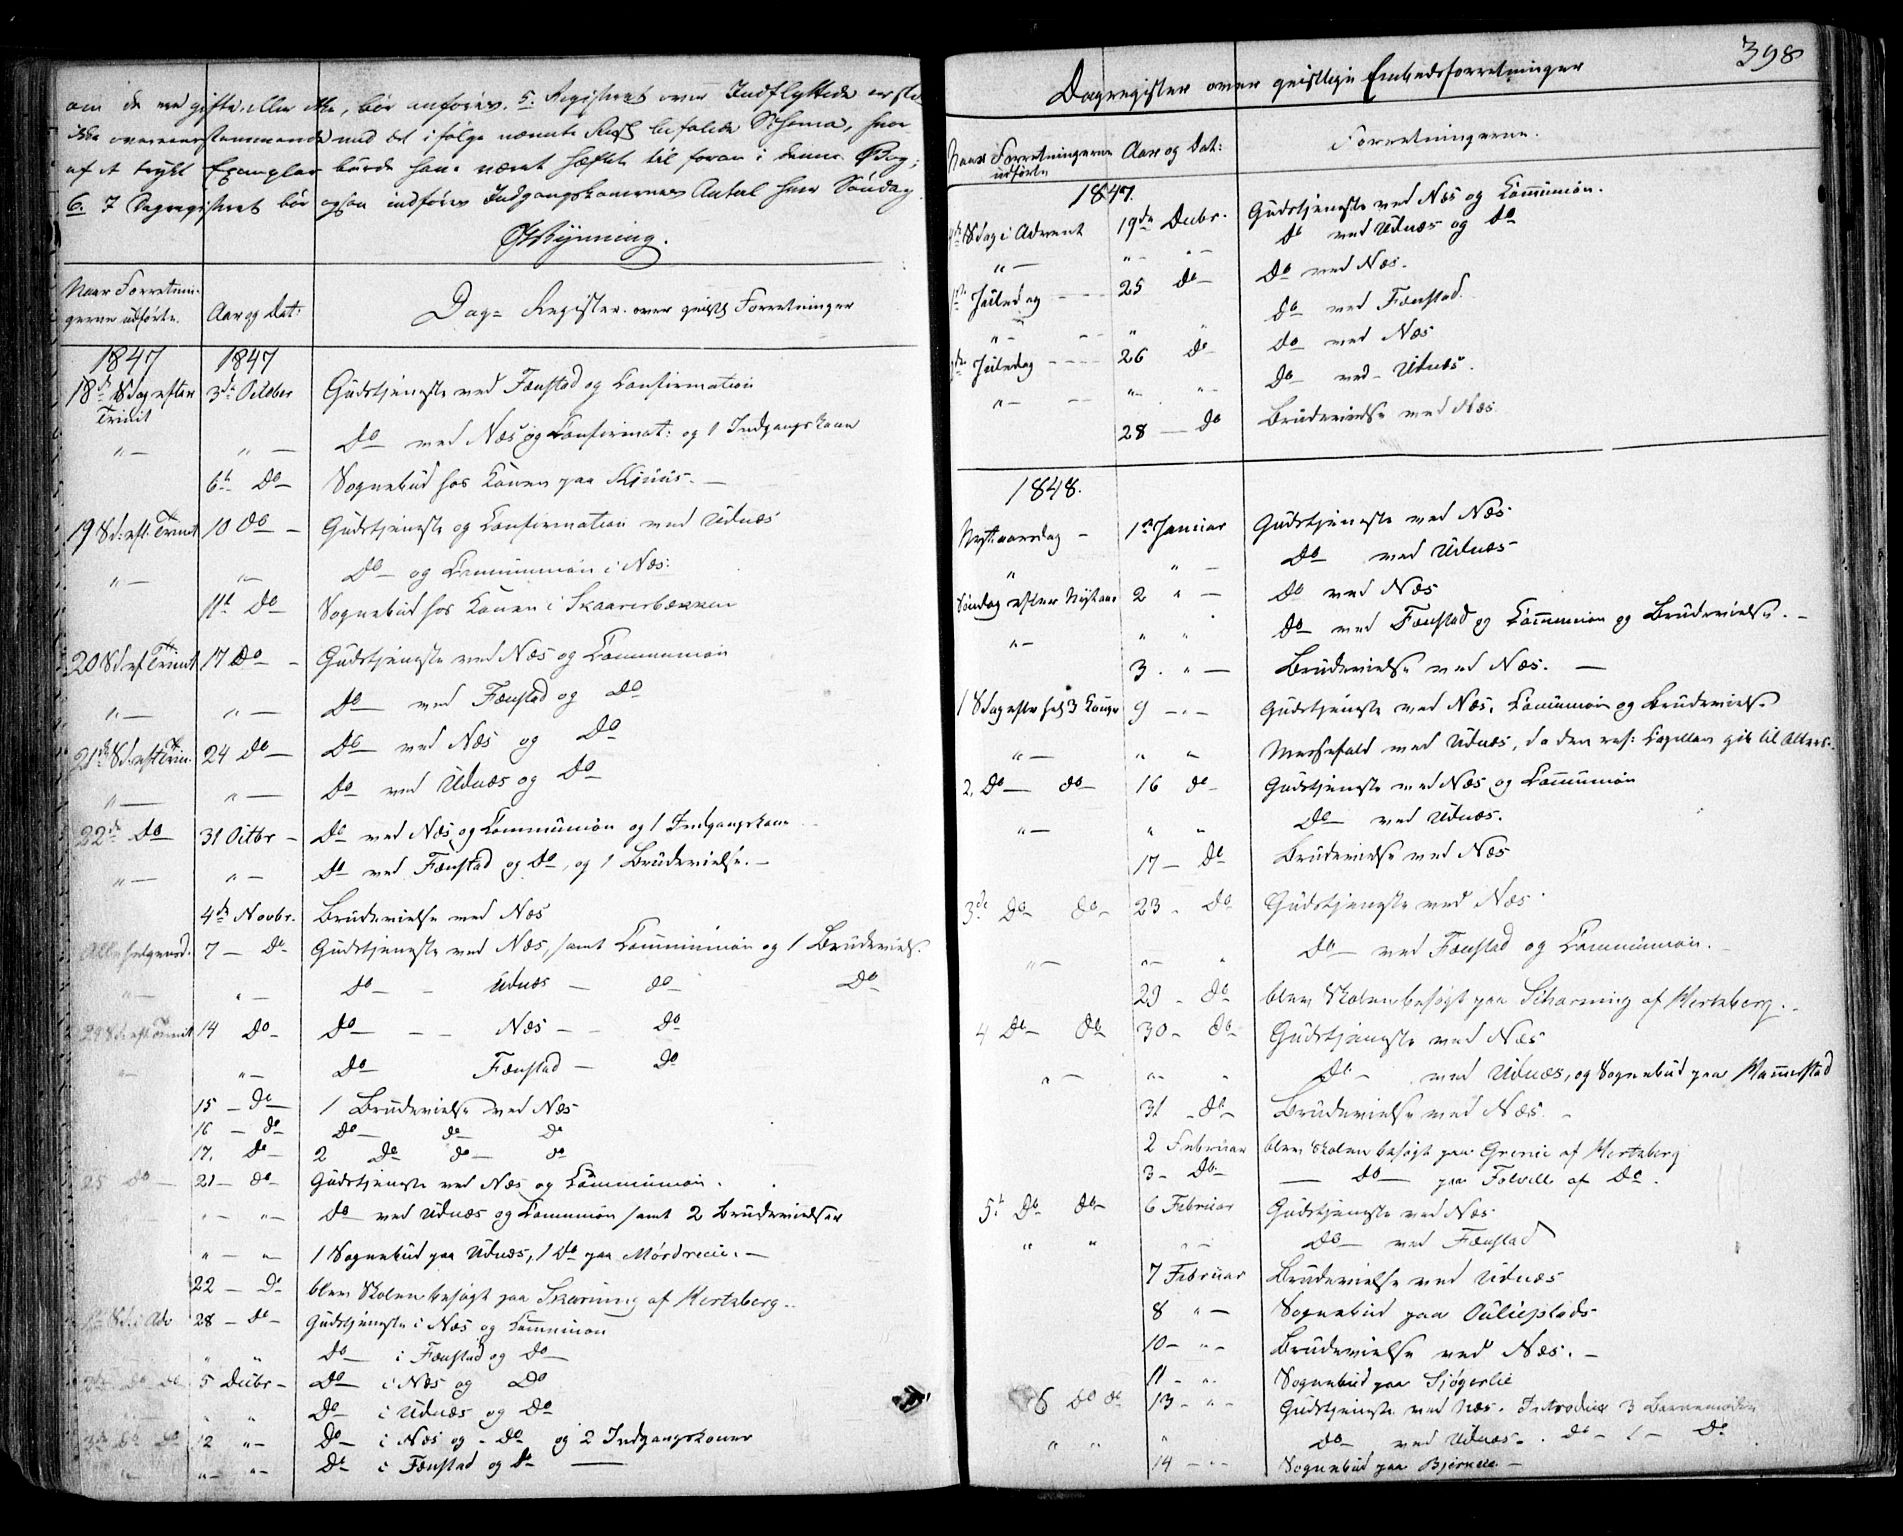 om de ere gifte eller ikke, bør anføres. 5. Registret over Indflyttede er
ikke overeensstemmende med det ifølge nævnte Resk befalede Schema, hvor
af et trykt Exemplar burde have været hæftet til foran i denne Bog;
6. I Dagregistret bør ogsaa indføres Indgangskonernes Antal hver Søndag
Naar Forretnin-
gerne udførte. Aar og Dat: Dag-Register over geistl Forretninger
1847 1847
18de Sdag efter Trinit 3de October Gudstjeneste ved Fænstad og Confirmation
" — " — Do ved Næs og Confirmat: og 1 Indgangskone
6te Do — Sognebud hos Konen paa
19 Sd: eft. Trinit 10 Do — Gudstjeneste og Confirmation ved Udnæs
" — " — Do — og Communion i Næs.
11te Do Sognebud hos Konen i Skaarerbækken
20 Sd ef Trinit 17 Do — Gudstjeneste ved Næs og Communion
" — " — Do — ved Fænstad og Do
21de Sd: eft Trin. 24 Do — Do — ved Næs og Do
" — " — Do ved Udnæs og Do
22de Do 31 Octbr — Do ved Næs og Communion og 1 Indgangskone
" — " — Do ved Fænstad og Do, og 1 Brudevielse. —
4de Novbr. Brudevielse ved Næs
Alle helgensd. 7 — Do Gudstjeneste ved Næs, samt Communion og 1 Brudeviels.
" — " — Do — - Udnæs - do — Do
Sd: eft Trinit 14 Do Do — - - Næs - - Do
" — " — Do Fænstad — Do
15 — Do — 1 Brudevielse ved Næs
16 — do Do — do — do
17. Do — 2 Do do — do
25 Do — 21 — do — Gudstjeneste ved Næs og Communion.
" — " — Do ved Udnæs og Communion samt 2 Brudevielser
" — " — 1 Sognebud paa Udnæs, 1 Do paa Mordreie. —
22 — Do blev Skolen besøgt paa Skarning af Hertzberg.
Sd: i Adv 28 — Do — Gudstjeneste i Næs og Communion
" " Do — i Fænstad og Do —
Do Do 5 Decbr — Do — i Næs og Do
" " Do — i Udnæs og Do
3de Do Do 12 " — Do — i Næs og - Do og 2 Indgangskoner
" — " — " — Do i Fænstad og Do —
398
Dagregister over geistlige Embedsforretninger
Naar Forretningerne udførte Aar og Dat: Forretningerne.
1847.
4de Sdag i Advent 19de Decbr. Gudstjeneste ved Næs og Communion.
" — " - " — Do ved Udnæs og Do
1ste Juledag - - - 25 do — Do ved Næs.
" — " " Do ved Fænstad.
2den Juledag - - - 26 do Do ved Næs
" — " — " — Do — ved - Udnæs.
28 — do Brudevielse ved Næs
1848.
Nytaarsdag — 1ste Januar Gudstjeneste ved Næs
" " — Do ved Udnæs
Søndag efter Nytaar 2 " — Do ved Næs
" — " " Do ved Fænstad og Communion og Brudevielse. —
3. " — Brudevielse ved Næs. —
1 Sdag efter hel 3 Konge 9 — " — Gudstjeneste ved Næs, Communion og Brudevielse
" — " " — Messefald ved Udnæs, da den res: Capellan gik til Alters.
2. Do — do — 16 do — Gudstjeneste ved Næs og Communion
" — " " Do — ved Udnæs.
17 — Do Brudevielse ved Næs
3de Do — do — 23 - Do Gudstjeneste ved Næs
" — " — " Do — ved Fænstad og Communion.
29 - Do blev Skolen besøgt paa Skarning af Hertzberg.
4 Do — do 30 — do — Gudstjeneste ved Næs
" — " — " Do — ved Udnæs, og Sognebud paa Hammerstad
31 - Do — Brudevielse ved Næs. —
2 Februar blev Skolen besøgt paa Grenie af Hertzberg
3 — Do — — Do — paa Folvelle af Do.
5te Do do — 6 Februar Gudstjeneste ved Næs
" " " — Do — ved Fænstad
7 Februar Brudevielse ved Udnæs
8 " — Sognebud paa
10 — " — Brudevielse ved Næs. —
11 — " Sognebud paa Sjøgerlie
6 Do Do 13 — " — Gudstjeneste ved Næs. Introduc 3 Barnemødre
" " " Do — ved Udnæs. - Do — 1 — Do
14 — " — Sognebud paa —